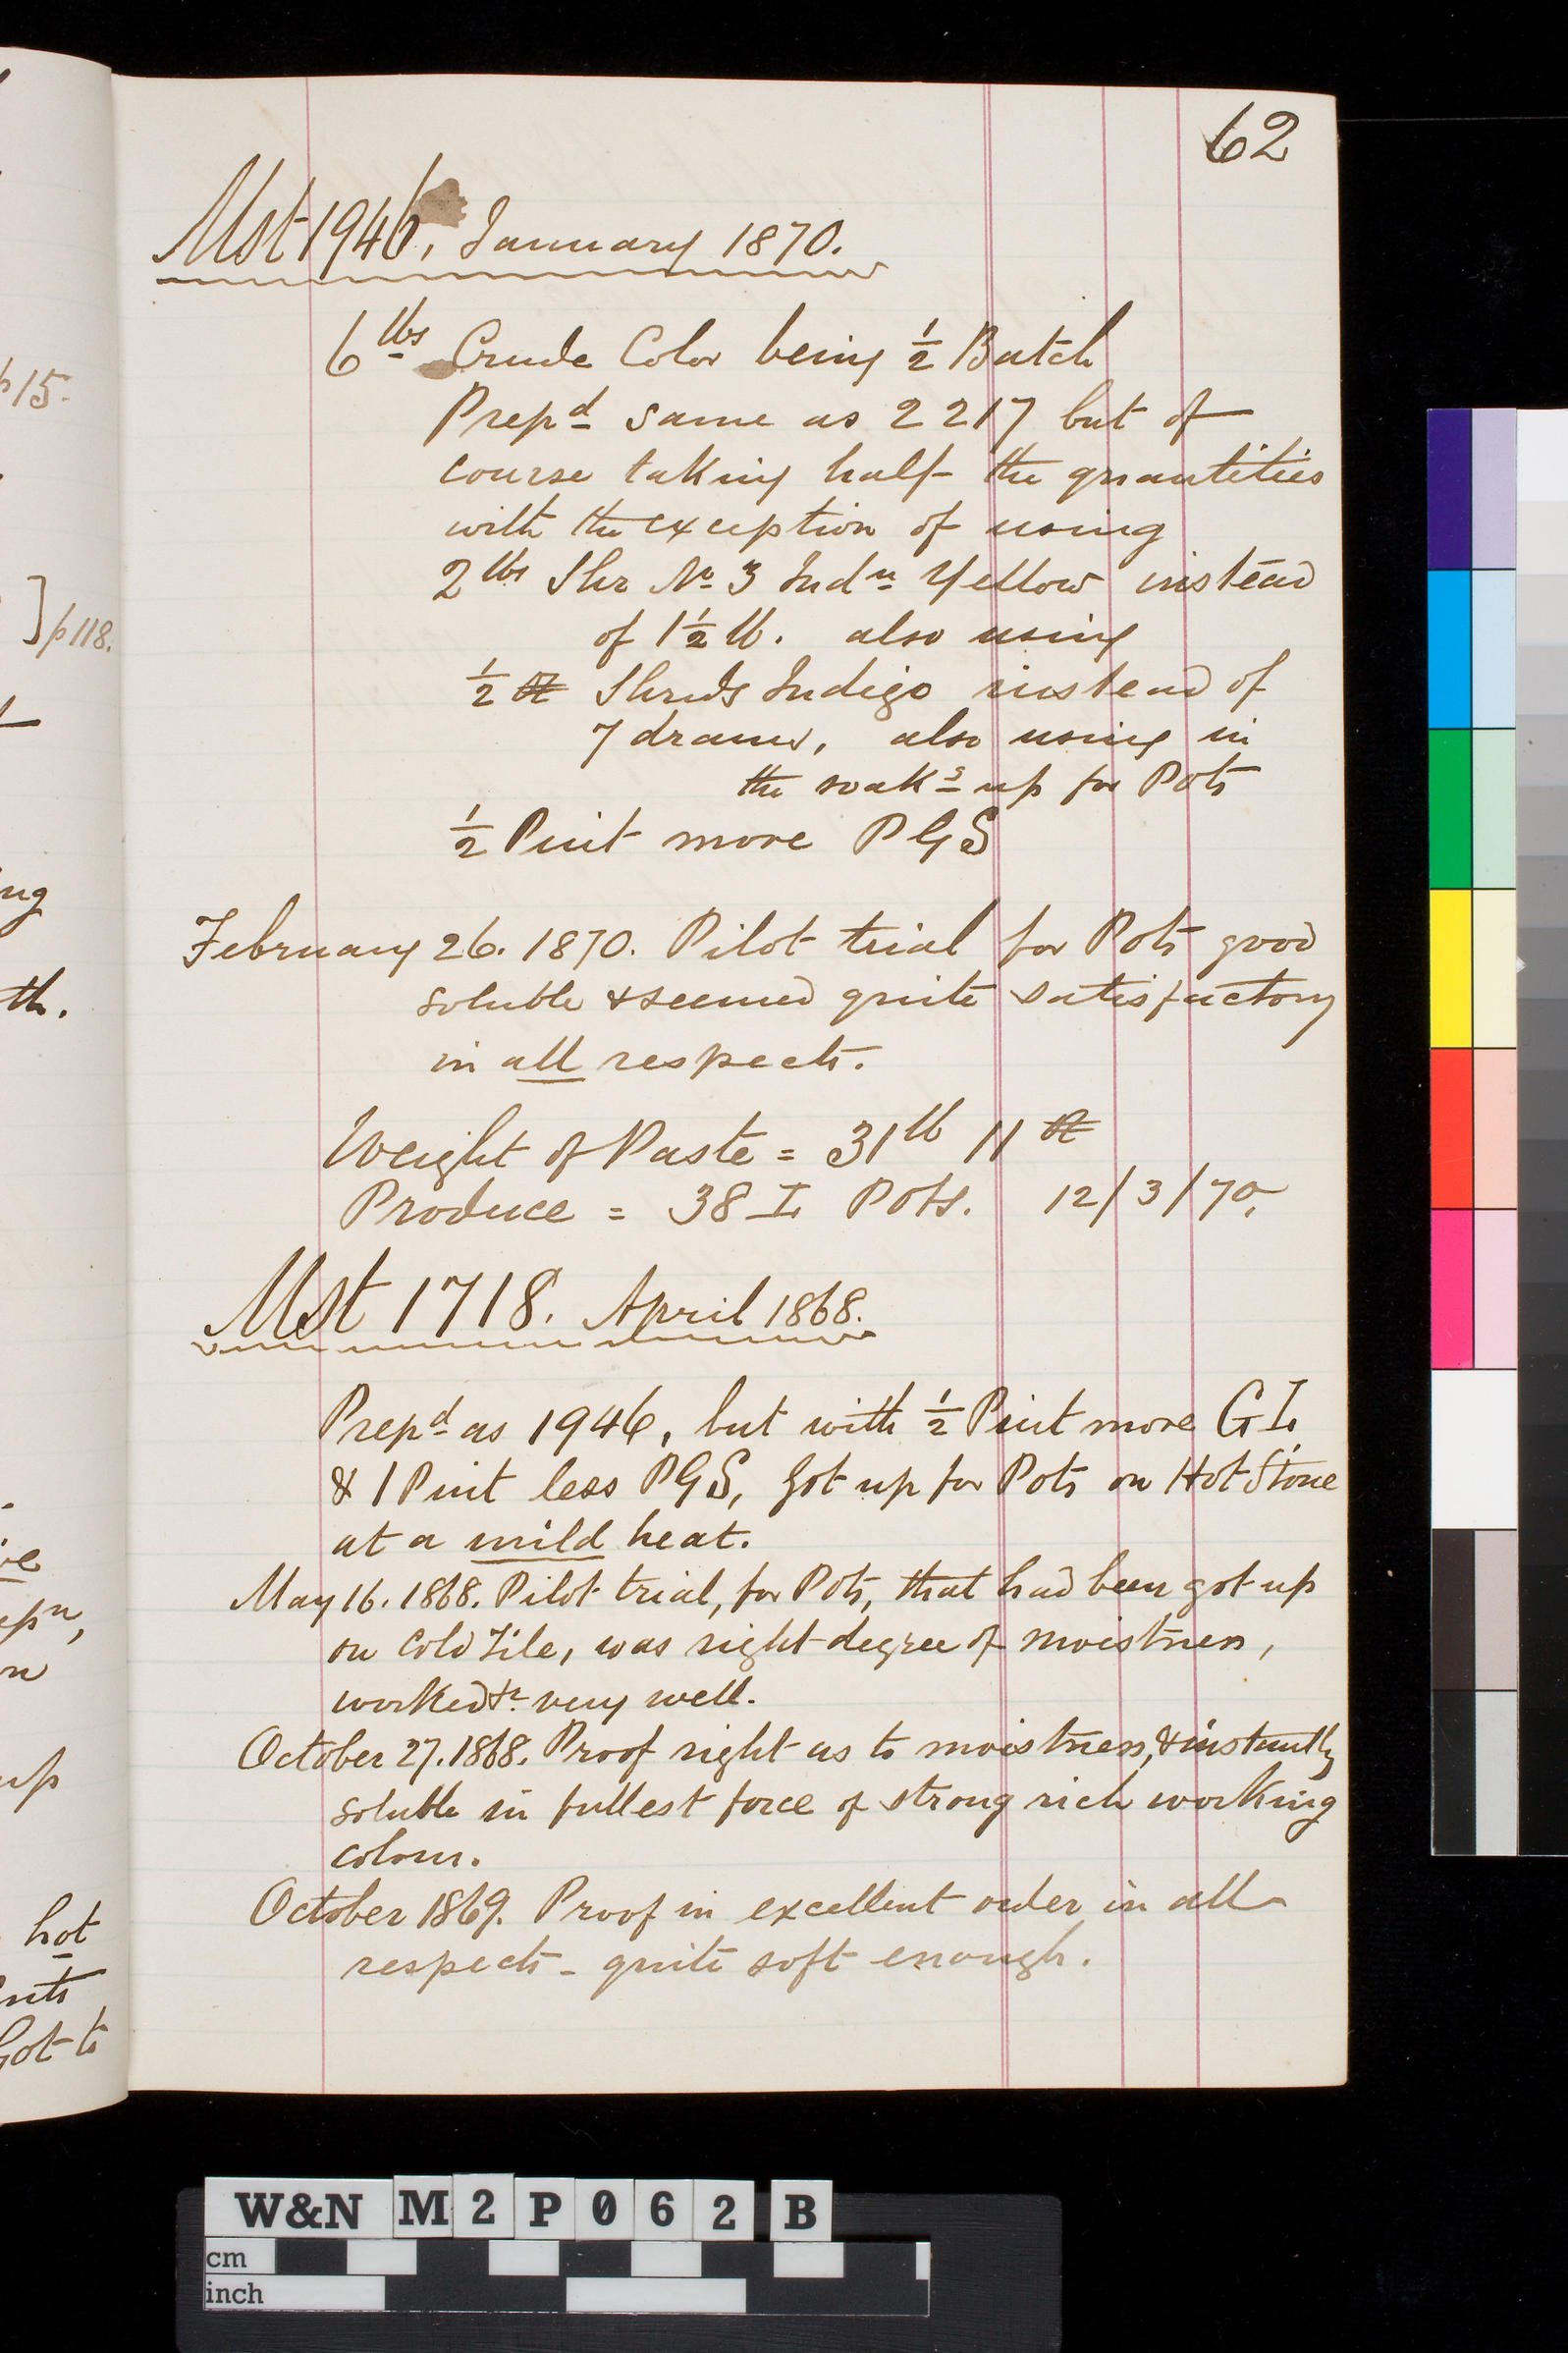 62
Mst 1946, January 1870.
6 lbs Crude Color being ½ Batch
Prepd same as 2217 but of
course taking half the quantities
with the exception of using
2 lbs Shr No 3 Indn Yellow instead
of 1½ lb. also using
½ ℥ Shreds Indigo instead of
7 drams, also using in
the soakg up for Pots
½ Pint more PGS
February 26. 1870. Pilot trial for Pots good
soluble & seemed quite satisfactory
in all respects.
Weight of Paste = 31 lb 11 ℥
Produce = 38 I Pots. 12/3/70,
Mst 1718. April 1868.
Prepd as 1946, but with ½ Pint more GI
& 1 Pint less PGS, Got up for Pots on Hot Stone
at a mild heat.
May 16. 1868. Pilot trial, for Pots, that had been got up
on Cold Tile, was right degree of moistness,
worked &c very well.
October 27. 1868. Proof right as to moistness, & instantly
soluble in fullest force of strong rich working
colour.
October 1869. Proof in excellent order in all
respects - quite soft enough.
p15.
] p118.
ng
th.
up
hot
Got to
W&N M2P062B
cm
inch